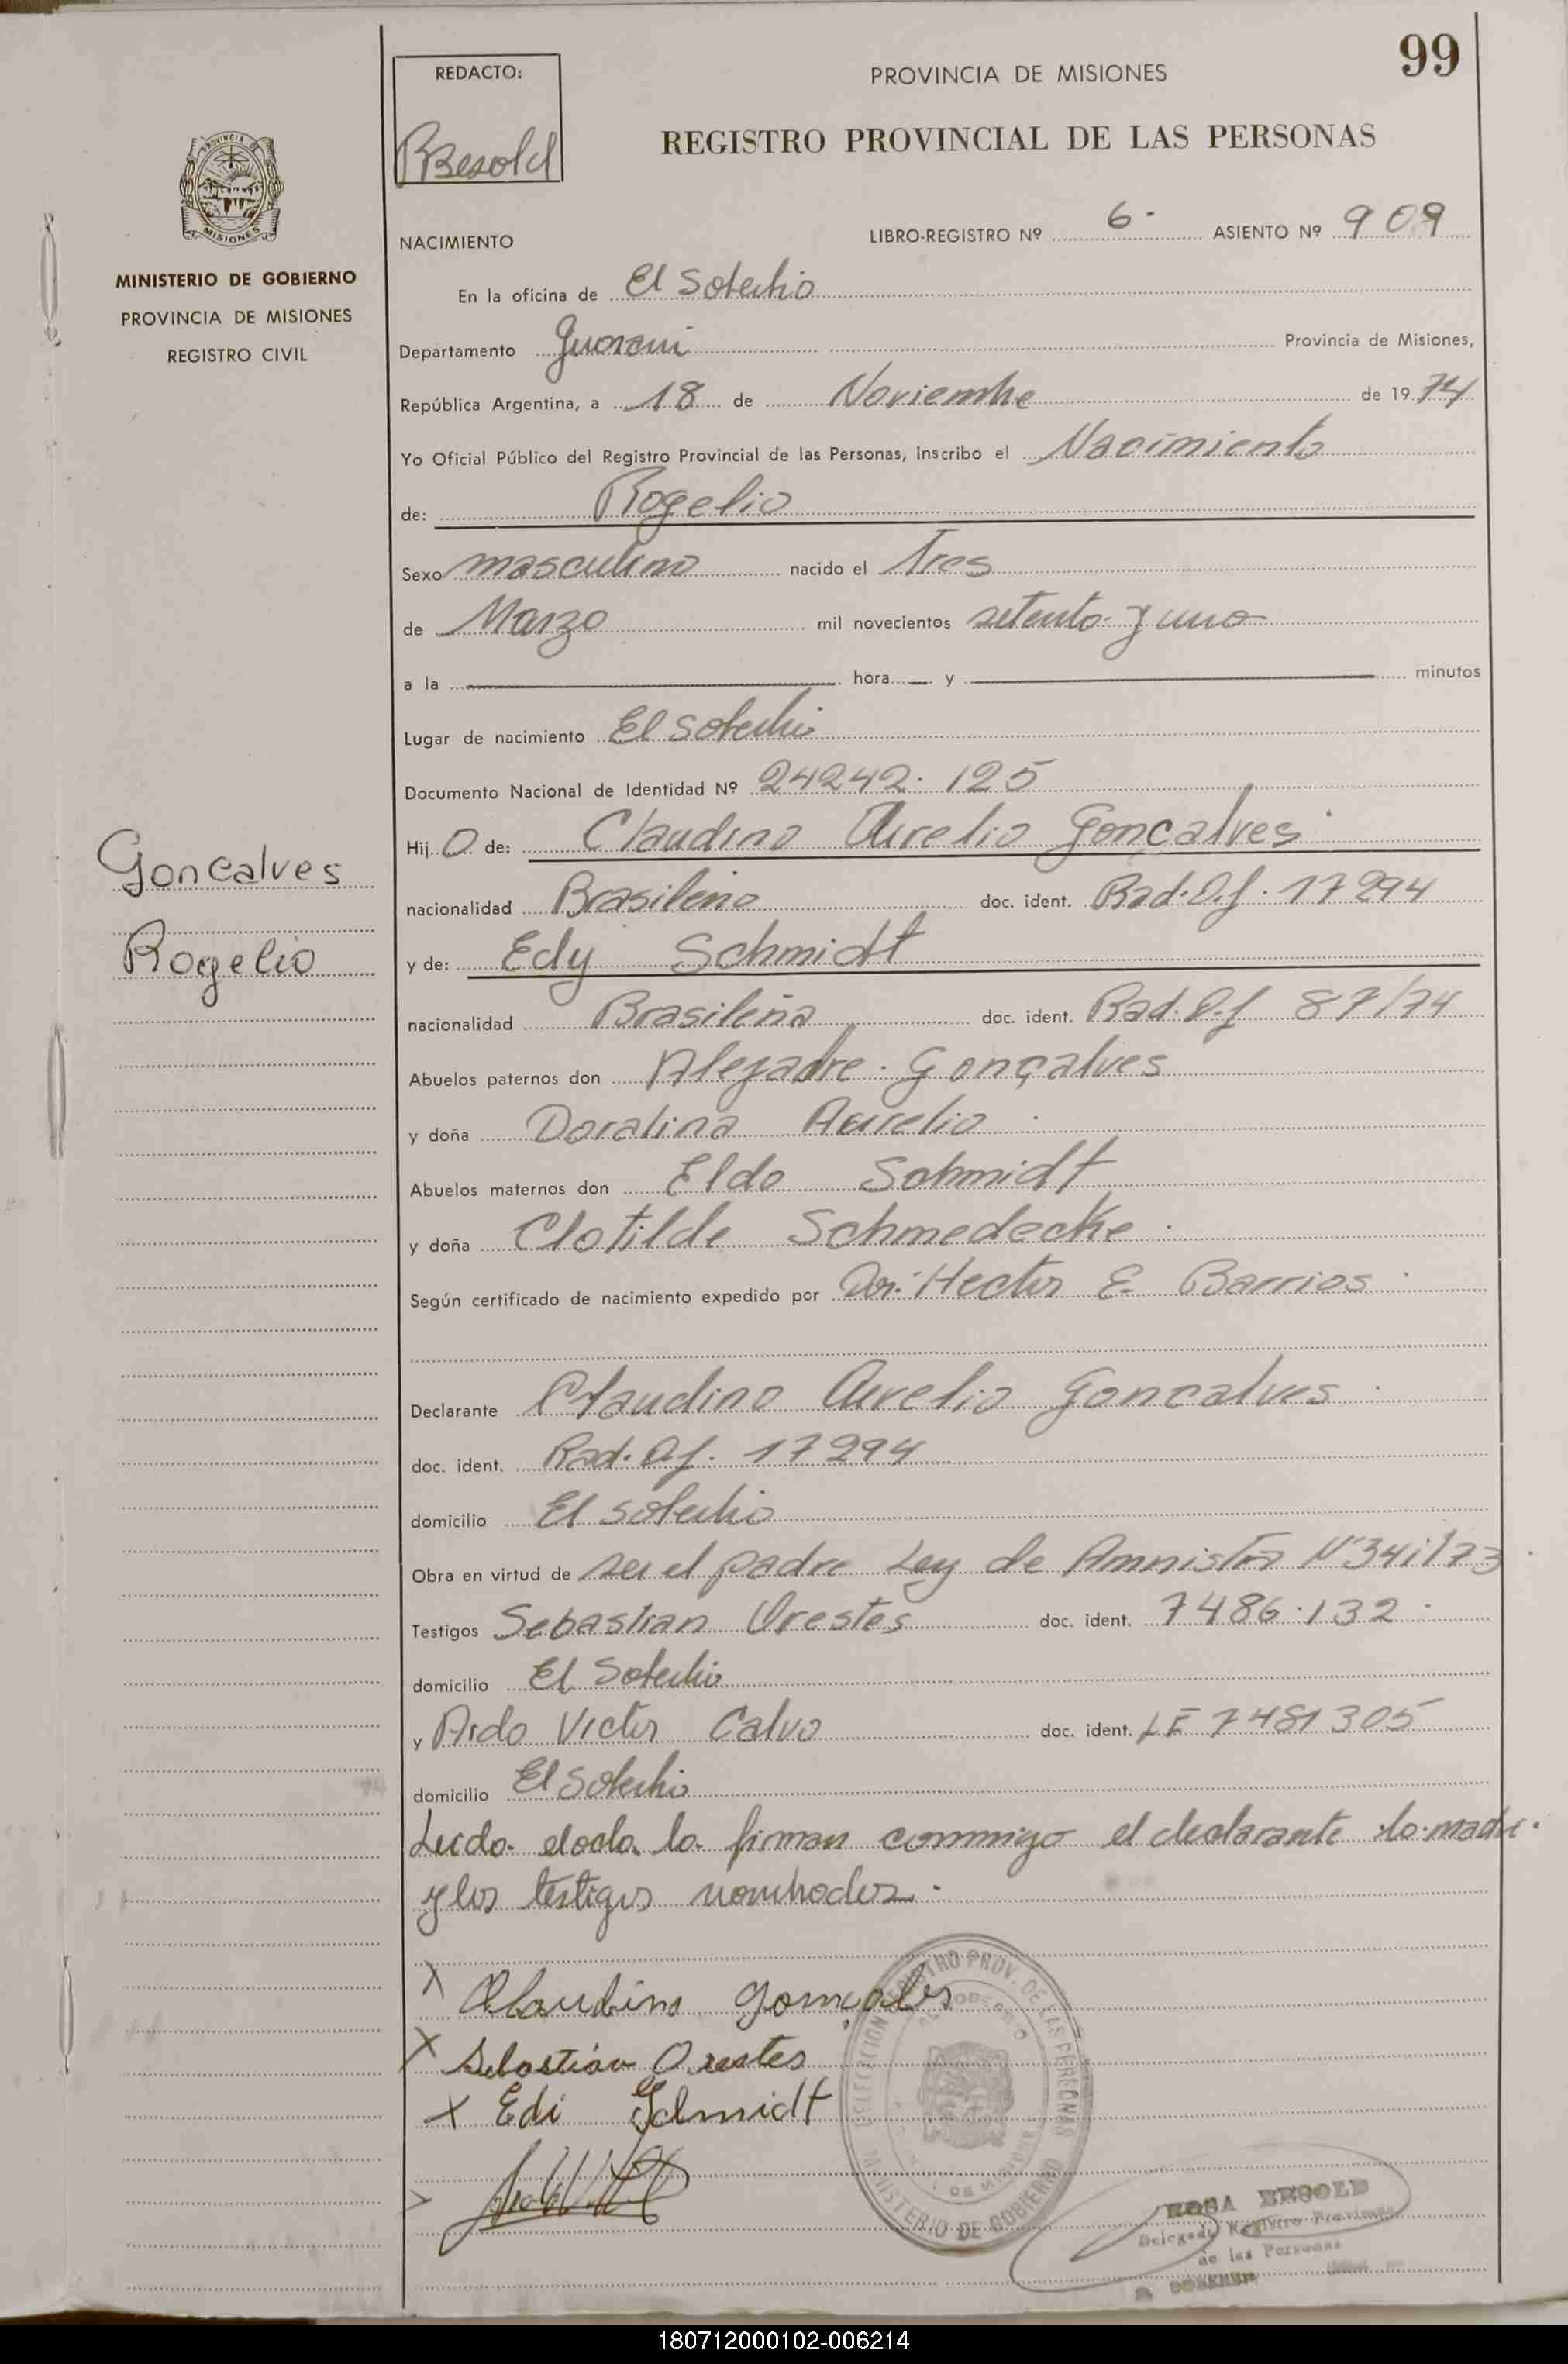 99
REDACTO:
PROVINCIA DE MISIONES
RBesold
REGISTRO PROVINCIAL DE LAS PERSONAS
PROVINCIA
MISIONES
NACIMIENTO
LIBRO-REGISTRO Nº 6 ASIENTO Nº 909
MINISTERIO DE GOBIERNO
PROVINCIA DE MISIONES
REGISTRO CIVIL
En la oficina de El Soberbio
Departamento Guarani Provincia de Misiones,
República Argentina, a 18 de Noviembre de 1974
Yo Oficial Público del Registro Provincial de las Personas, inscribo el Nacimiento
de: Rogelio
Sexo masculino nacido el Tres
de Marzo mil novecientos setenta y uno
a la hora y minutos
Lugar de nacimiento El Soberbio
Documento Nacional de Identidad Nº 24242.125
Hij O de: Claudino Aurelio Gonçalves
Goncalves
Rogelio
nacionalidad Brasileño doc. ident. Rad. Of. 17294
y de: Edy Schmidt
nacionalidad Brasileña doc. ident. Rad. Of 87/74
Abuelos paternos don Alejadre Gonçalves
y doña Doralina Aurelio
Abuelos maternos don Eldo Schmidt
y doña Clotilde Schmedecke
Según certificado de nacimiento expedido por Dr. Hector E. Barrios
Declarante Claudino Aurelio Goncalves
doc. ident. Rad. Of. 17294
domicilio El Soberbio
Obra en virtud de ser el padre Ley de Amnistia Nº 341/73
Testigos Sebastian Orestes doc. ident. 7486.132
domicilio El Soberbio
y Aido Victor Calvo doc. ident. LE 7481305
domicilio El Soberbio
Leida el acta la firman conmigo el declarante la madre
y los testigos nombrados.
X Claudino Gonçalves
X Sebastián Orestes
X Edi Schmidt
REGISTRO PROV. DE LAS PERSONAS
MINISTERIO DE GOBIERNO
ROSA BESOLD
Delegada Registro Provincial
de las Personas
180712000102-006214